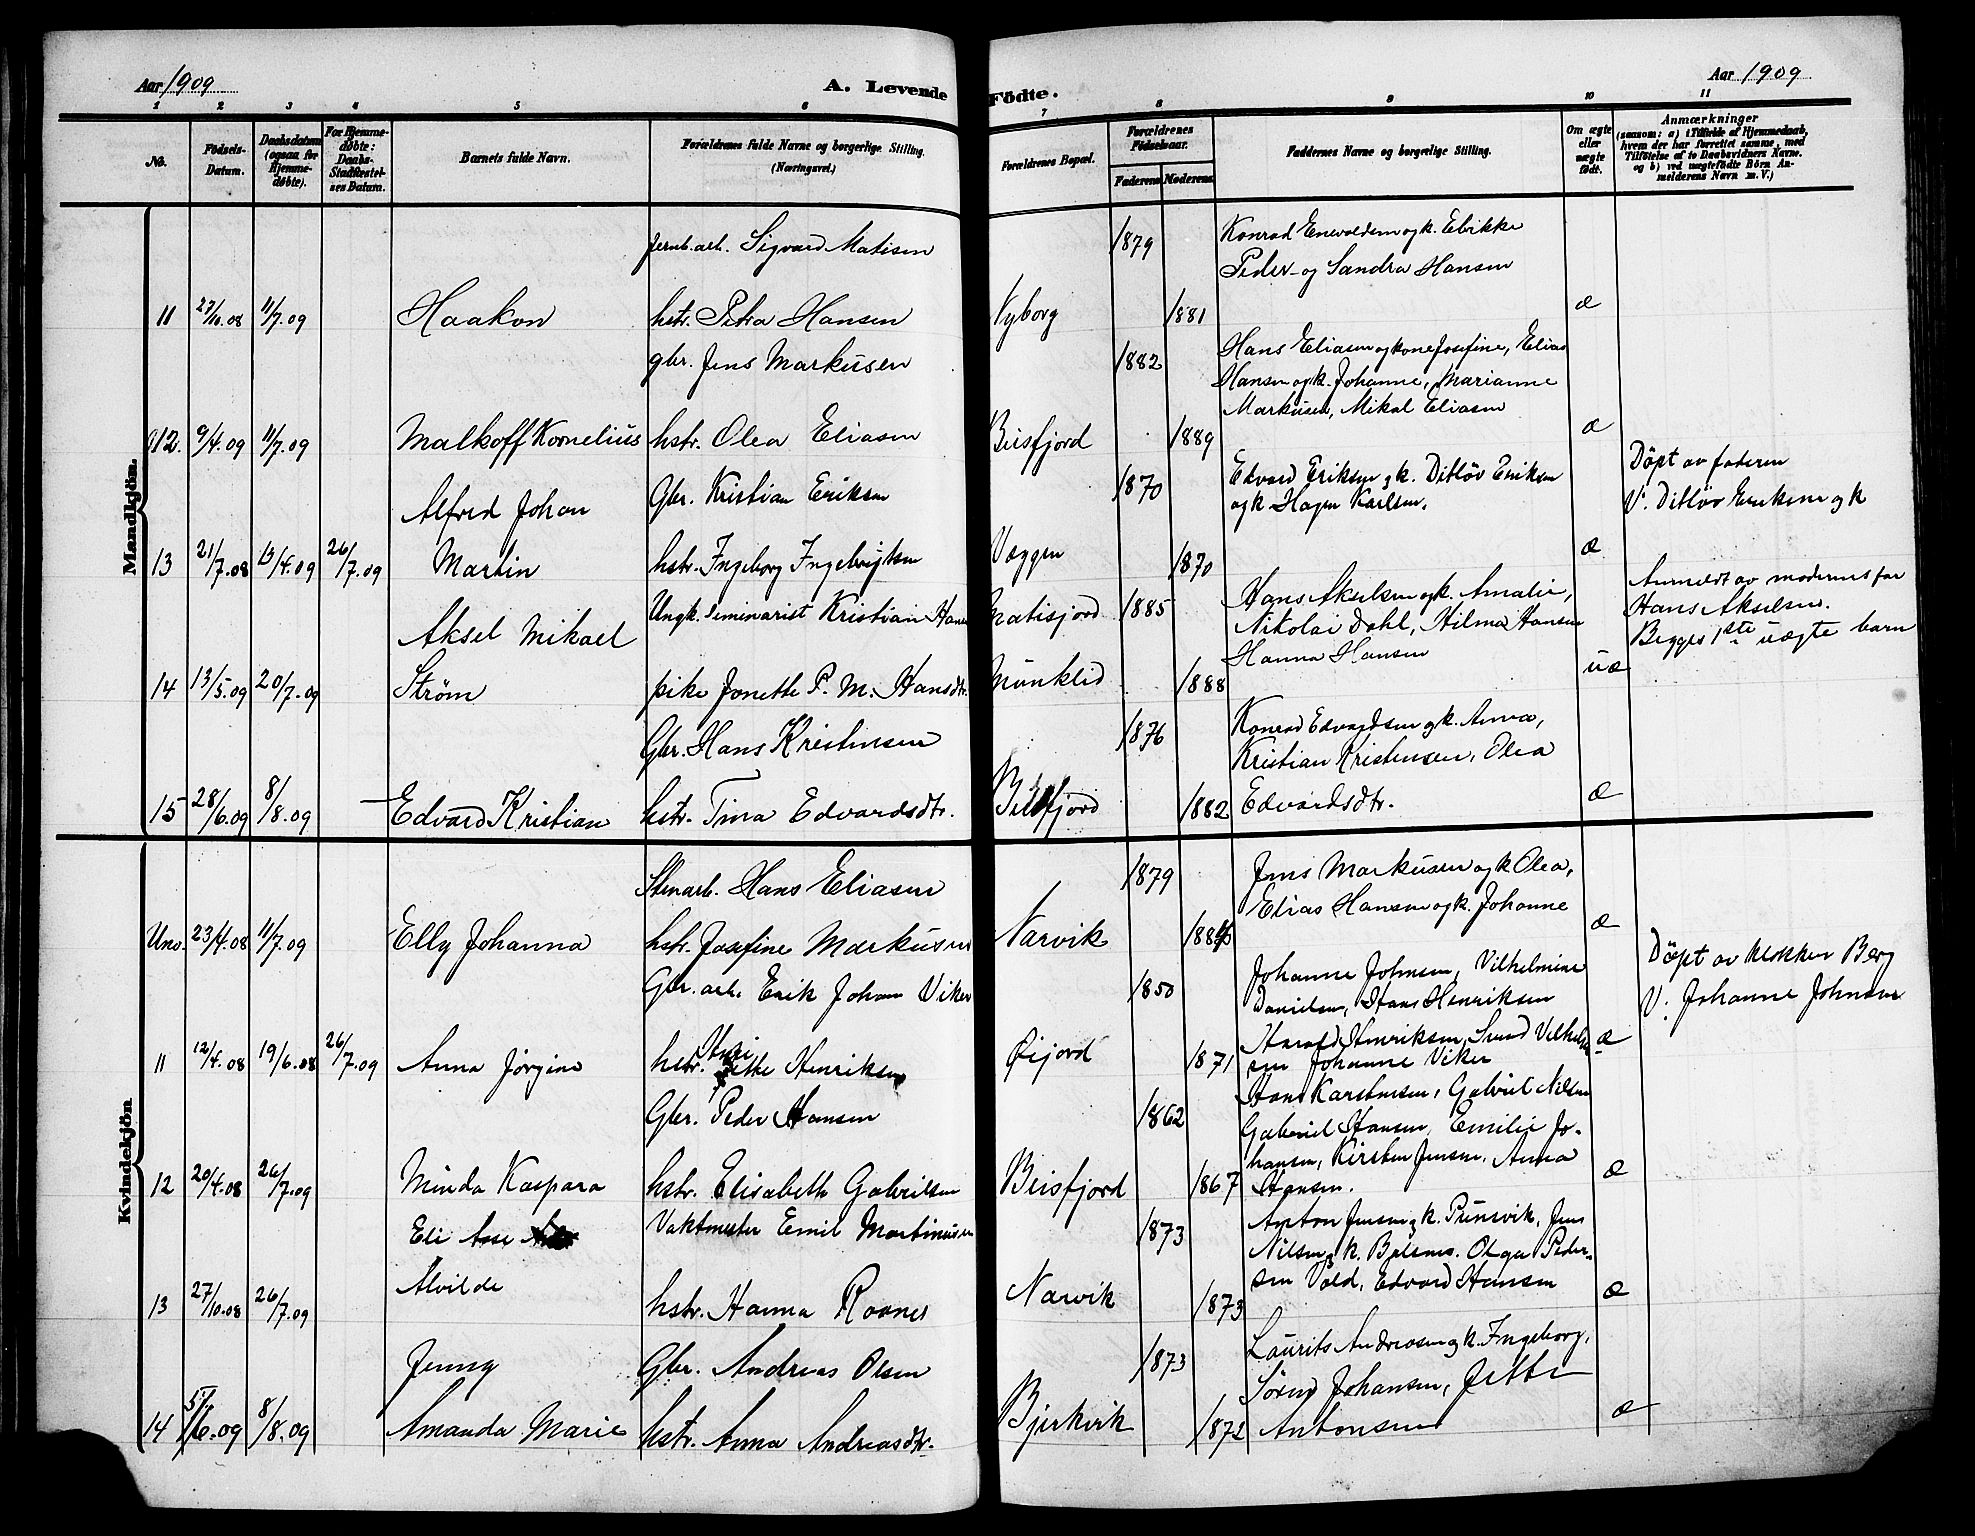 Aar 1909
A. Levende Födte.
Aar 1909
1 2 3 4 5 6 7 8 9 10 11
No.
Födsels-Datum.
Daabsdatum (ogsaa for Hjemme-døbte).
For Hjemme-døbte: Daabs-Stadfæstel-ses Datum.
Barnets fulde Navn.
Forældrenes fulde Navne og borgerlige Stilling. (Næringsvei.)
Forældrenes Bopæl.
Forældrenes Födselsaar.
Faderens Moderens
Faddernes Navne og borgerlige Stilling.
Om ægte eller uægte födt.
Anmærkninger
(saasom: a) i Tilfælde af Hjemmedaab, hvem der har forrettet samme, med Tilföielse af to Daabsvidners Navne, og b) ved uægtefödte Börn An-melderens Navn m. V.)
Mandkjön.
jernb.arb. Sigvard Matisen 1879 Konrad Enevoldsen og k. Elvikke
Peder og Sandra Hansen
11 27/10.08 11/7.09 Haakon hstr. Petra Hansen Nyborg 1881 æ
gbr. Jens Markusen 1882 Hans Eliasen og kone Josefine, Elias
Hansen og k. Johanne, Marianne
Markusen, Mikal Eliasen
12. 9/4.09 11/7.09 Malkoff Kornelius hstr. Olea Eliasen Beisfjord 1889 æ
Alfred Johan Gbr. Kristian Eriksen 1870 Edvard Eriksen og k. Ditløv Eriksen
og k. Hagen Karlsen.
Döpt av faderen
V. Ditløv Eriksen og k
13 21/7.08 13/4.09 26/7.09 Martin hstr. Ingeborg Ingebrigtsen Væggen 1870 æ
Aksel Mikael Ungk. Seminarist Kristian Hansen 1885 Hans Akselsen og k. Amalie,
Nikolai Dahl, Hilma Hansen
Hanna Hansen
Anmeldt av moderens far
Hans Akselsen.
Begges 1ste uægte barn
14 13/5.09 20/7.09 Strøm pike Jonette P. M. Hansdtr. 1888 uæ
Gbr. Hans Kristensen 1876 Konrad Edvardsen og k. Anna,
Kristian Kristensen, Olea
15 28/6.09 8/8.09 Edvard Kristian hstr. Tina Edvardsdtr. Beisfjord 1882 Edvardsdtr. æ
Kvindekjön
Stenarb. Hans Eliasen 1879 Jens Markusen og k Olea,
Elias Hansen og k. Johanne
Uno. 23/4.08 11/7.09 Elly Johanna hstr. Josefine Markusen Narvik æ
Gbr. arb. Erik Johan Viker 1850 Johanne Johnsen, Vilhelmine
Danielsen, Hans Henriksen
Döpt av klokker Berg
V. Johanne Johnsen
11 12/4.08 19/6.08 26/7.09 Anna Jörgine hstr. Henriksen Øijord 1871 Harald Henriksen,
sen Johanne Viker æ
Gbr. Peder Hansen 1862 Hans Karstensen, Gabriel Nilsen
Gabriel Hansen, Emilie Jo-
hansen, Kirsten Jensen, Anna
12 20/4.08 26/7.09 Minda Kaspara hstr. Elisabeth Gabrielsen Beisfjord 1867 Hansen. æ
Eli Aase Vaktmester Emil Martinusen 1873 Anton Jensen og k. Prinsvik, Jens
Nilsen og k. Olga Peder-
sen Vold, Edvard Hansen
13 27/10.08 26/7.09 Alvilde hstr. Hanna Narvik 1873 æ
Jenny Gbr. Andreas Olsen 1873 Laurits Andreasen og k. Ingeborg,
Sören Johansen, Jette
14 5/6.09 8/8.09 Amanda Marie hstr. Anna Andreasdtr. Bjerkvik 1872 Antonsen æ